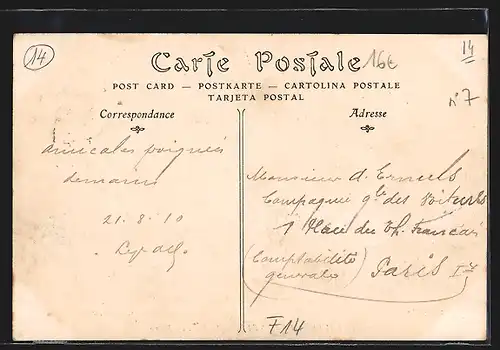 14
Carte Postale
16€
14
POST CARD — POSTKARTE — CARTOLINA POSTALE
TARJETA POSTAL
n° 7
Correspondance
Adresse
amicales poignées
de mains
21. 8. 10
Monsieur A.
Compagnie gle des Voitures
1 Place du Th. Francais
(Comptabilité
generale)
Paris Ier
F14